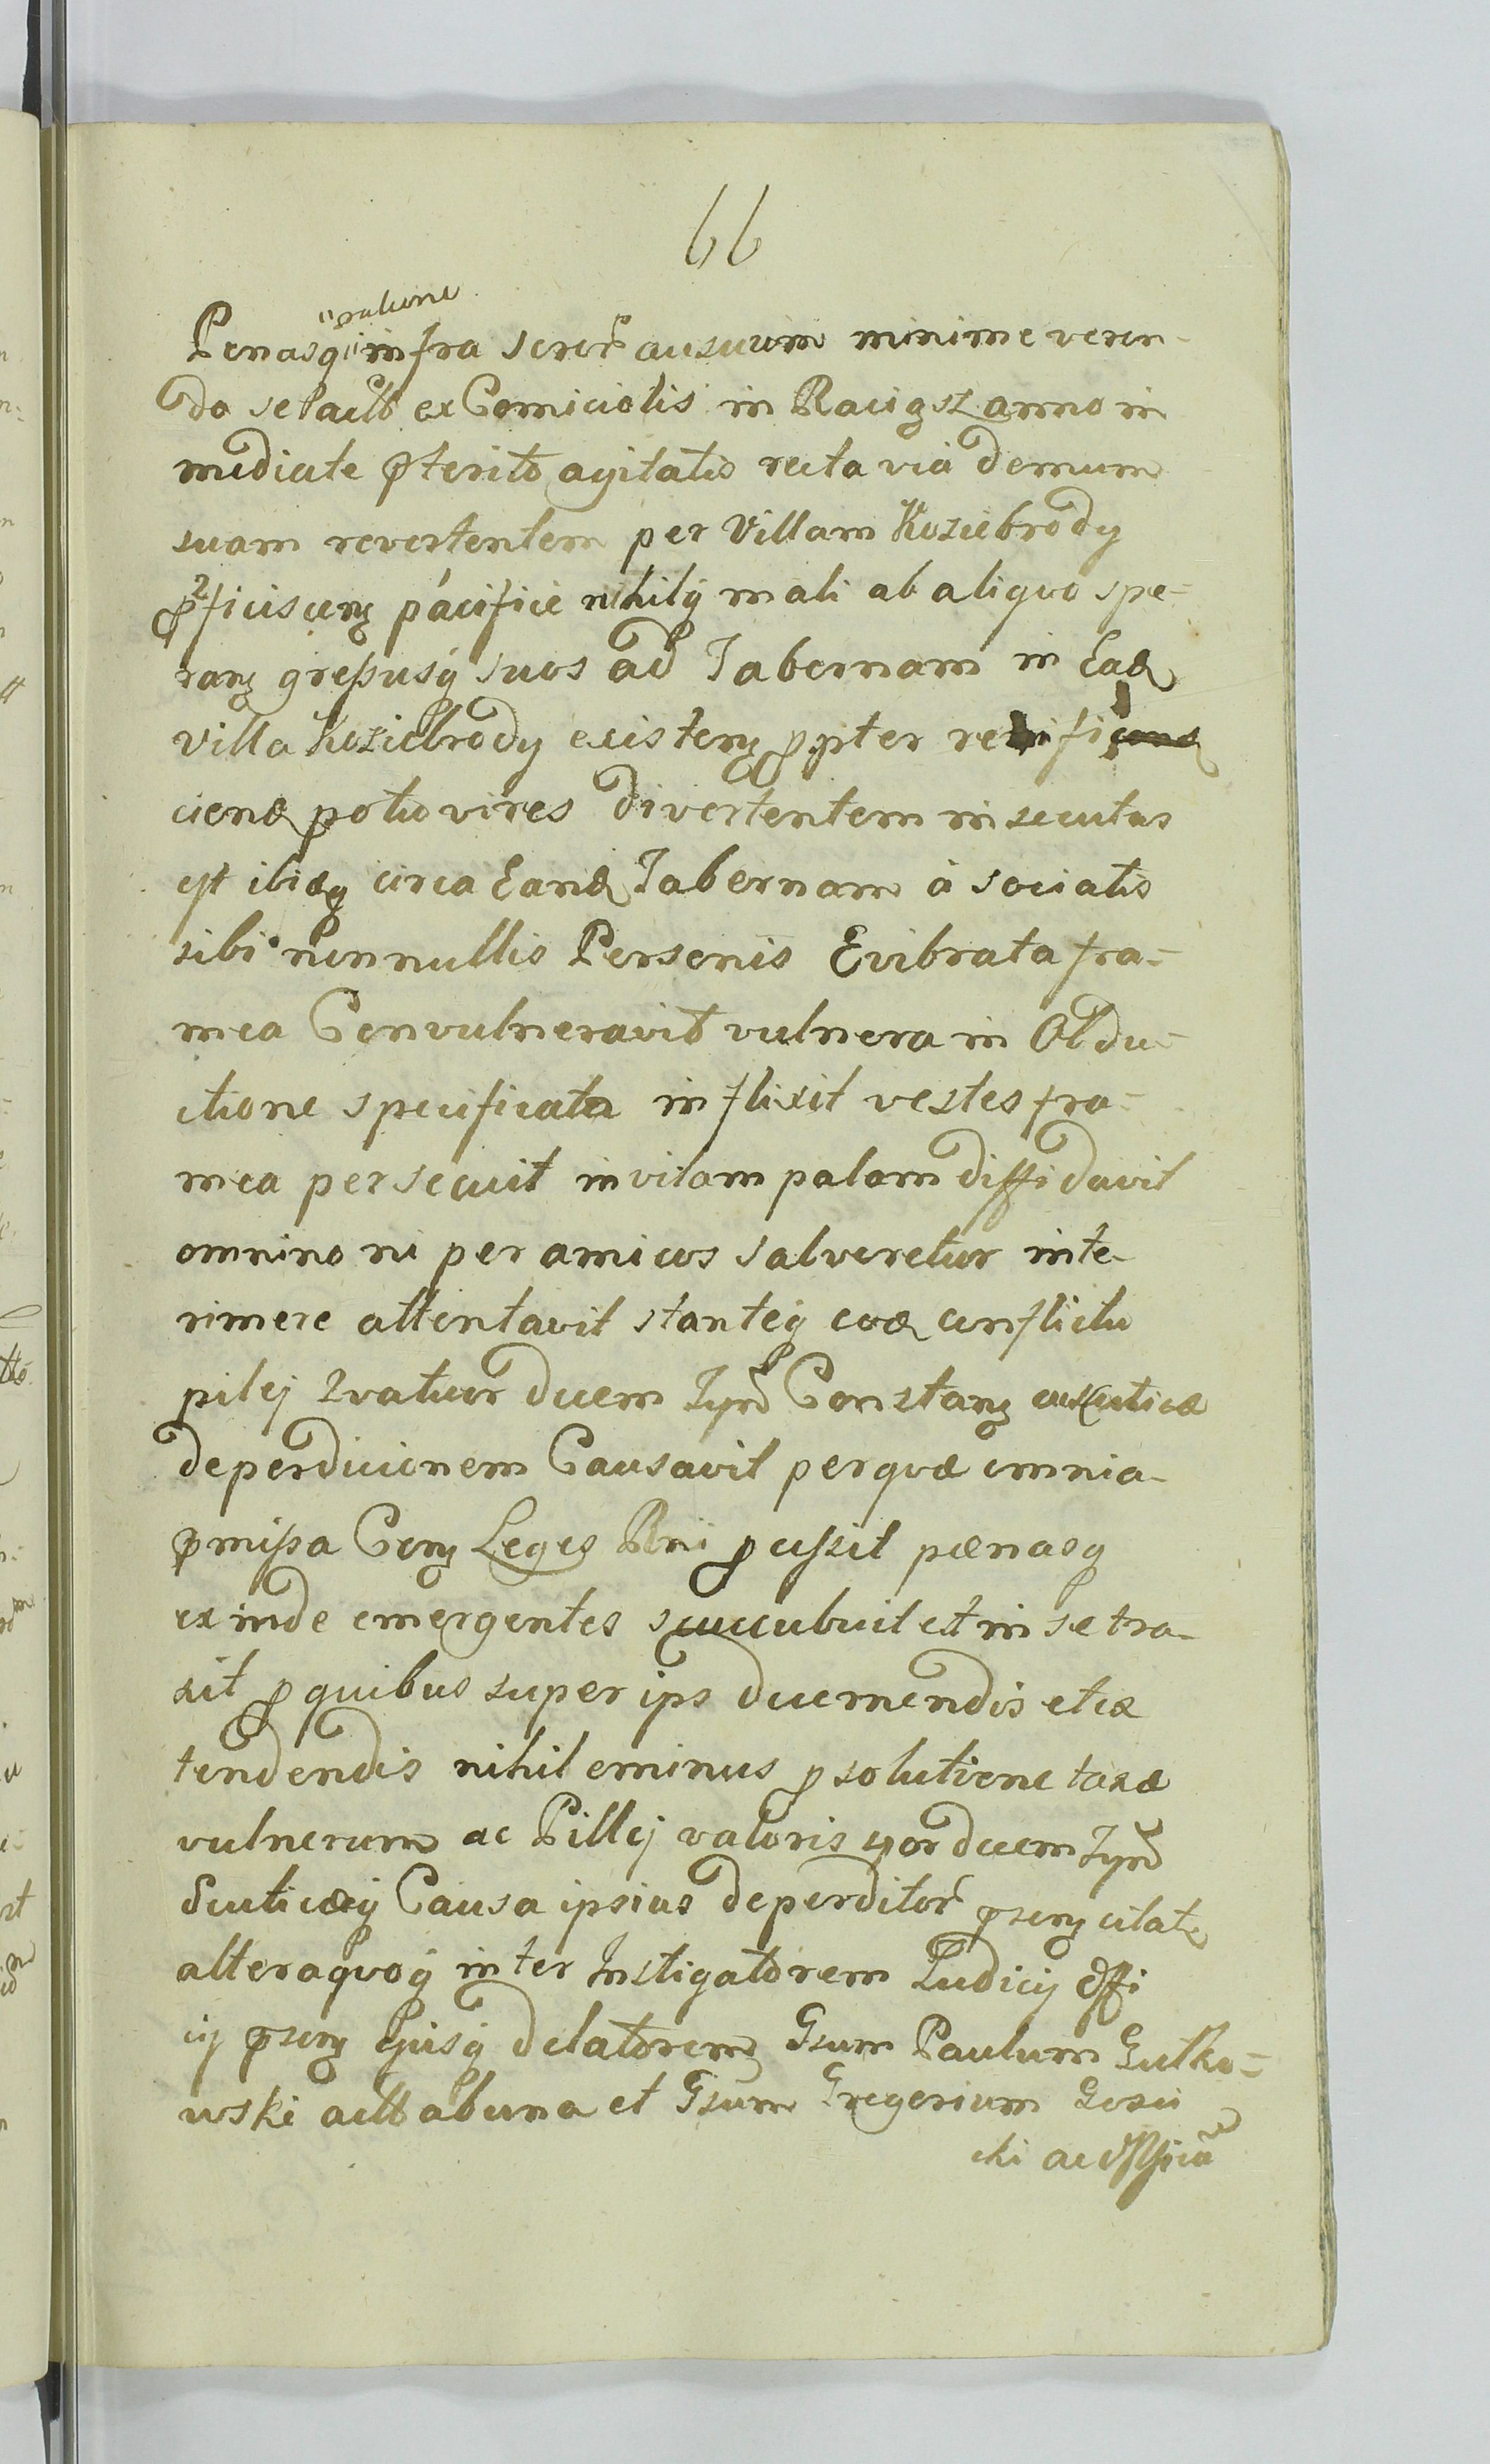 66
ratione
Penasq infra scrõr ausuum minime veren-
do se ex Comiciolis in Raciąsz anno in
mediate pterito agitatis recta via domum
suam revertentem per Villam Koziebrody
pficiscenz pácifice nihilq mali ab aliquo spe-
ranz greßusq suos ad Tabernam in Ead
Villa Koziebrody existenz ppter
ciend potio vires divertentem insecutus
est ibidq circa Eand Tabernam á sociatis
sibi nonnullis Personis Evibrata fra-
mea Convulneravit vulnera in Obdu-
ctione specificata inflixit vestes fra-
mea persecuit in vitam palam diffidavit
omnino ni per amicos salveretur inte-
rimere attentavit stanteq eod conflictu
pilej quatuor ducm Tynf Constanz
deperdicionem Causavit per quæ omnia
pmißa Conz Leges Rni pcessit pænasq
exinde emergentes succubuit et in se tra-
xit p quibus super ips decernendis et ex
tendendis nihil eminus p solutione taxæ
vulnerum ac Pillej valoris 4or ducm Tynf
Scuticæq Causa ipsius deperditor psenz citat
altera quoq inter Instigatorem Iudicij Offi
cij psenz Ejusq delatorem Gsum Paulum Gutko-
wski ab una et Gsum Gregorium
cki ac